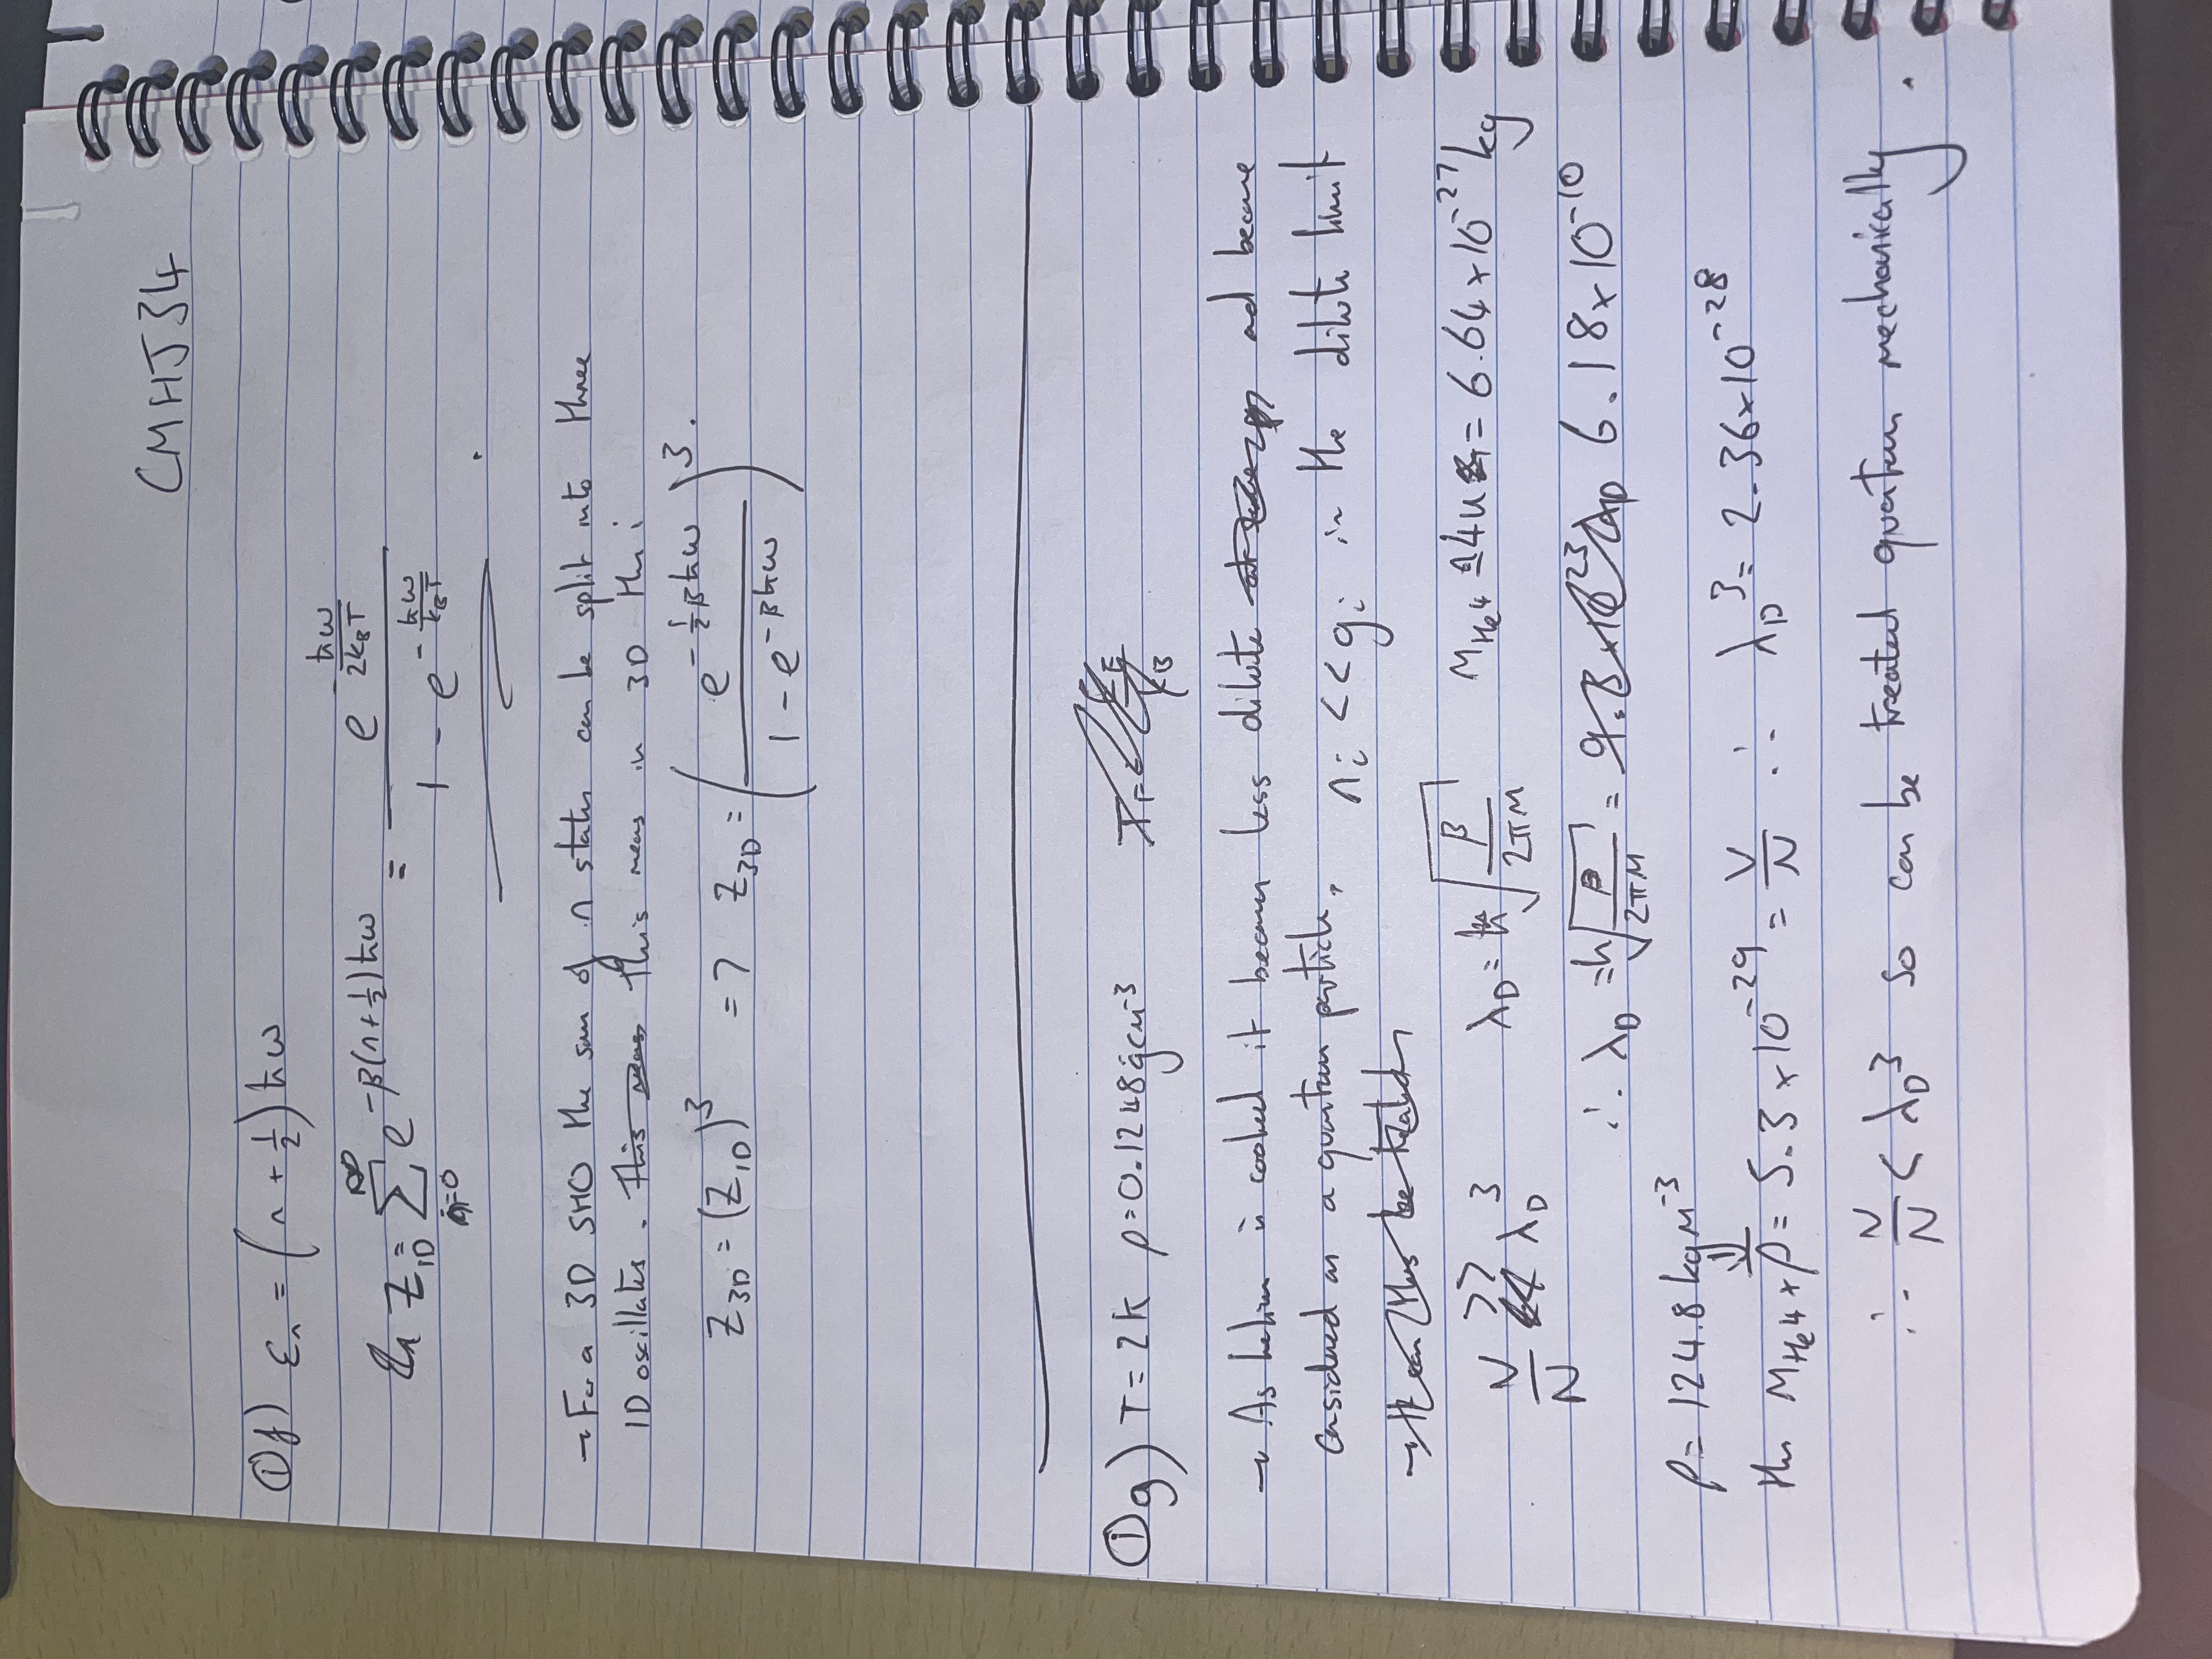 CMHJ34
① f) εₙ = (n + 1/2) ħω
Z₁D = Σ_{n=0}^{∞} e^{-β(n+1/2)ħω} = e^{-ħω/2k_BT} / (1 - e^{-ħω/k_BT})
→ For a 3D SHO the sum of n states can be split into three
1D oscillates. This means This means in 3D
Z₃D = (Z₁D)³ => Z₃D = (e^{-1/2 βħω} / (1 - e^{-βħω}))³.
① g) T = 2K ρ = 0.1248 gcm⁻³ T_F = E_F/k_B
→ As helium is cooled it becomes less dilute and become
considered as a quantum particle, nᵢ << gᵢ in the dilute limit
→ It can thus be treated
V/N >> λ_D³ λ_D = h√(β/2πM) M_He4 = 4u = 6.64 × 10⁻²⁷ kg
∴ λ_D = h√(β/2πM) = 9.8 × 10²³ λ_D 6.18 × 10⁻¹⁰
ρ = 124.8 kgm⁻³
thus M_He4 ÷ ρ = 5.3 × 10⁻²⁹ = V/N ∴ λ_D³ = 2.36 × 10⁻²⁸
∴ V/N < λ_D³ so can be treated quantum mechanically.